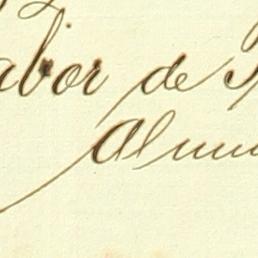 abor de
Alum